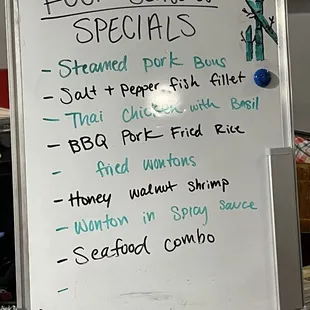 SPECIALS
- Steamed pork Buns
- Salt + Pepper fish fillet
- Thai Chicken with Basil
- BBQ Pork Fried Rice
- fried wontons
- Honey walnut shrimp
- Wonton in Spicy Sauce
- Seafood combo
-